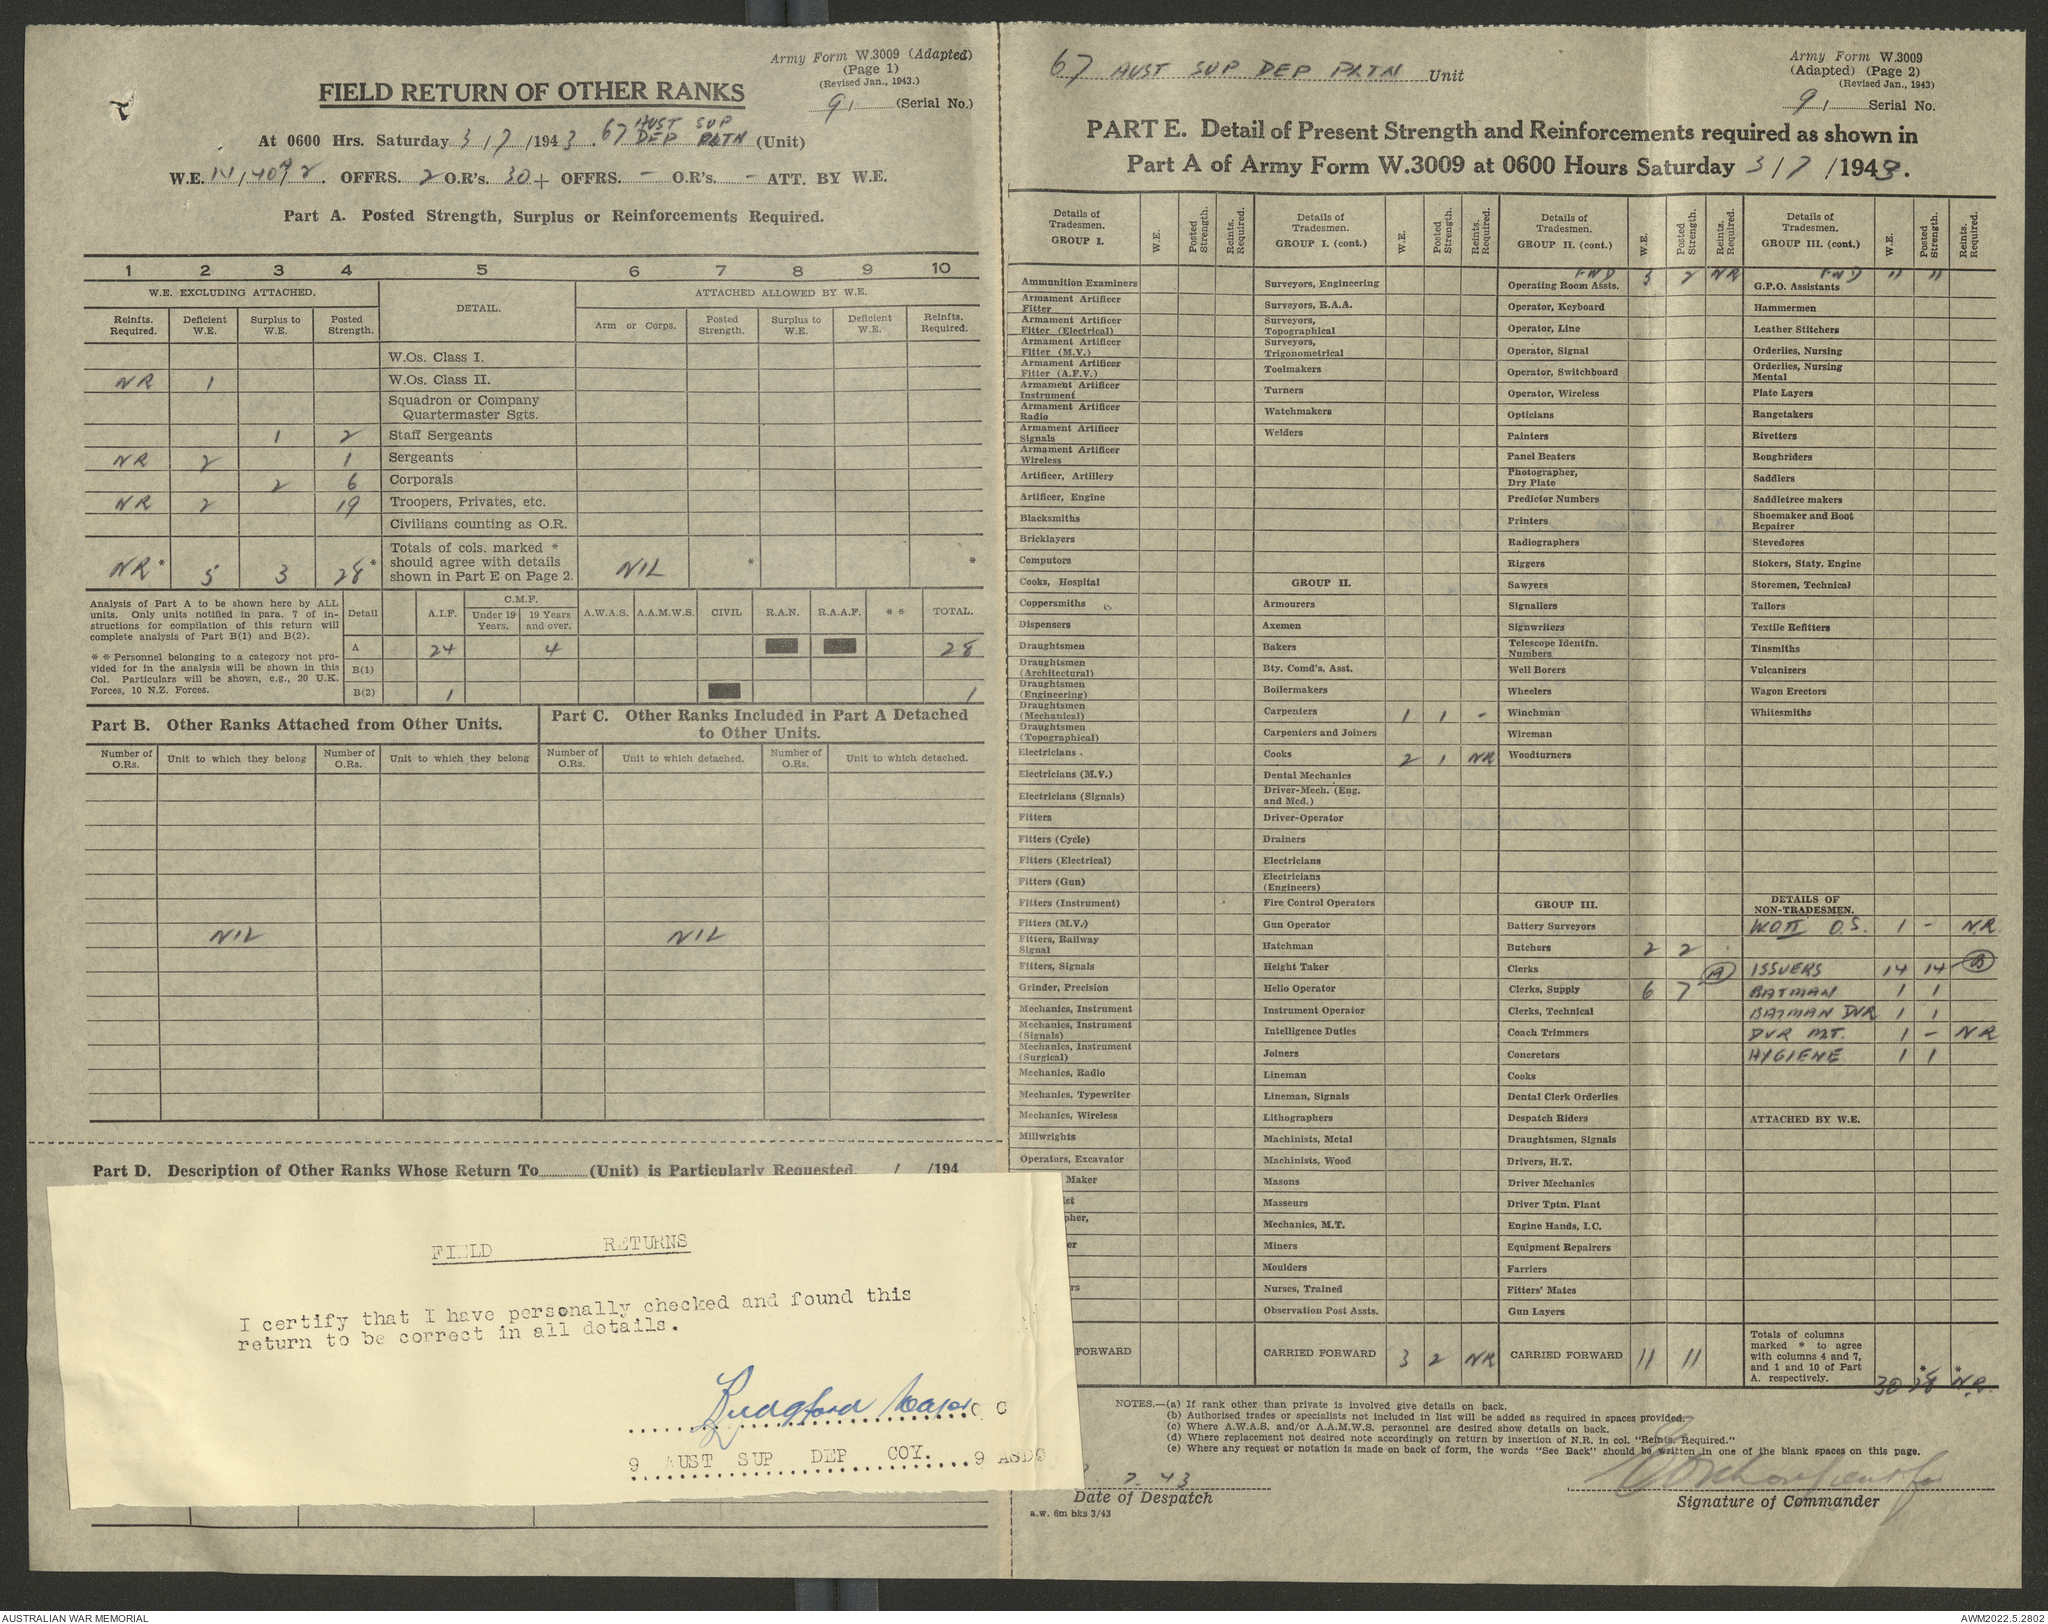 Army Form W.3009 (Adapted)
(Page 1)
(Revised Jan., 1943.)
FIELD RETURN OF OTHER RANKS
91 (Serial No.)
At 0600 Hrs. Saturday 3/7/1943. 67 AUST SUP DEP PLTN (Unit)
W.E. OFFRS. 2 O.R's. 30 + OFFRS. - O.R's. - ATT. BY W.E.
Part A. Posted Strength, Surplus or Reinforcements Required.
1 2 3 4 5 6 7 8 9 10
W.E. EXCLUDING ATTACHED. DETAIL. ATTACHED ALLOWED BY W.E.
Reinfts. Required. Deficient W.E. Surplus to W.E. Posted Strength. Arm or Corps. Posted Strength. Surplus to W.E. Deficient W.E. Reinfts. Required.
W.Os. Class I.
NR 1 W.Os. Class II.
Squadron or Company Quartermaster Sgts.
1 2 Staff Sergeants
NR 2 1 Sergeants
2 6 Corporals
NR 2 19 Troopers, Privates, etc.
Civilians counting as O.R.
NR* 5 3 28* Totals of cols. marked * should agree with details shown in Part E on Page 2. NIL * *
Analysis of Part A to be shown here by ALL
units. Only units notified in para. 7 of in-
structions for compilation of this return will
complete analysis of Part B(1) and B(2).
* * Personnel belonging to a category not pro-
vided for in the analysis will be shown in this
Col. Particulars will be shown, e.g., 20 U.K.
Forces, 10 N.Z. Forces.
Detail A.I.F. C.M.F. Under 19 Years. 19 Years and over. A.W.A.S. A.A.M.W.S. CIVIL R.A.N. R.A.A.F. * * TOTAL.
A 24 4 28
B(1)
B(2) 1 1
Part B. Other Ranks Attached from Other Units.
Part C. Other Ranks Included in Part A Detached
to Other Units.
Number of O.Rs. Unit to which they belong Number of O.Rs. Unit to which they belong Number of O.Rs. Unit to which detached. Number of O.Rs. Unit to which detached.
NIL NIL
Part D. Description of Other Ranks Whose Return To (Unit) is Particularly Requested. / /194
FIELD RETURNS
I certify that I have personally checked and found this
return to be correct in all details.
Major O C
9 AUST SUP DEP COY. 9 ASDC
67 AUST SUP DEP PLTN Unit
Army Form W.3009
(Adapted) (Page 2)
(Revised Jan., 1943)
91 Serial No.
PART E. Detail of Present Strength and Reinforcements required as shown in
Part A of Army Form W.3009 at 0600 Hours Saturday 3/7/1943.
Details of Tradesmen. GROUP I. W.E. Posted Strength. Reints. Required.
Ammunition Examiners
Armament Artificer Fitter
Armament Artificer Fitter (Electrical)
Armament Artificer Fitter (M.V.)
Armament Artificer Fitter (A.F.V.)
Armament Artificer Instrument
Armament Artificer Radio
Armament Artificer Signals
Armament Artificer Wireless
Artificer, Artillery
Artificer, Engine
Blacksmiths
Bricklayers
Computors
Cooks, Hospital
Coppersmiths
Dispensers
Draughtsmen
Draughtsmen (Architectural)
Draughtsmen (Engineering)
Draughtsmen (Mechanical)
Draughtsmen (Topographical)
Electricians
Electricians (M.V.)
Electricians (Signals)
Fitters
Fitters (Cycle)
Fitters (Electrical)
Fitters (Gun)
Fitters (Instrument)
Fitters (M.V.)
Fitters, Railway Signal
Fitters, Signals
Grinder, Precision
Mechanics, Instrument
Mechanics, Instrument (Signals)
Mechanics, Instrument (Surgical)
Mechanics, Radio
Mechanics, Typewriter
Mechanics, Wireless
Millwrights
Operators, Excavator
Maker
FORWARD
Details of Tradesmen. GROUP I. (cont.) W.E. Posted Strength. Reints. Required.
Surveyors, Engineering
Surveyors, R.A.A.
Surveyors, Topographical
Surveyors, Trigonometrical
Toolmakers
Turners
Watchmakers
Welders
GROUP II.
Armourers
Axemen
Bakers
Bty. Comd's. Asst.
Boilermakers
Carpenters 1 1 -
Carpenters and Joiners
Cooks 2 1 NR
Dental Mechanics
Driver-Mech. (Eng. and Med.)
Driver-Operator
Drainers
Electricians
Electricians (Engineers)
Fire Control Operators
Gun Operator
Hatchman
Height Taker
Helio Operator
Instrument Operator
Intelligence Duties
Joiners
Lineman
Lineman, Signals
Lithographers
Machinists, Metal
Machinists, Wood
Masons
Masseurs
Mechanics, M.T.
Miners
Moulders
Nurses, Trained
Observation Post Assts.
CARRIED FORWARD 3 2 NR
Details of Tradesmen. GROUP II. (cont.) W.E. Posted Strength. Reints. Required.
FWD 3 2 NR
Operating Room Assts.
Operator, Keyboard
Operator, Line
Operator, Signal
Operator, Switchboard
Operator, Wireless
Opticians
Painters
Panel Beaters
Photographer, Dry Plate
Predictor Numbers
Printers
Radiographers
Riggers
Sawyers
Signallers
Signwriters
Telescope Identfn. Numbers
Well Borers
Wheelers
Winchman
Wireman
Woodturners
GROUP III.
Battery Surveyors
Butchers 2 2
Clerks
Clerks, Supply 6 7 (A)
Clerks, Technical
Coach Trimmers
Concretors
Cooks
Dental Clerk Orderlies
Despatch Riders
Draughtsmen, Signals
Drivers, H.T.
Driver Mechanics
Driver Tptn. Plant
Engine Hands, I.C.
Equipment Repairers
Farriers
Fitters' Mates
Gun Layers
CARRIED FORWARD 11 11
Details of Tradesmen. GROUP III. (cont.) W.E. Posted Strength. Reints. Required.
FWD 11 11
G.P.O. Assistants
Hammermen
Leather Stitchers
Orderlies, Nursing
Orderlies, Nursing Mental
Plate Layers
Rangetakers
Rivetters
Roughriders
Saddlers
Saddletree makers
Shoemaker and Boot Repairer
Stevedores
Stokers, Staty. Engine
Storemen, Technical
Tailors
Textile Refitters
Tinsmiths
Vulcanizers
Wagon Erectors
Whitesmiths
DETAILS OF NON-TRADESMEN.
WOII O.S. 1 - N.R.
ISSUERS 14 14 (B)
BATMAN 1 1
BATMAN DVR 1 1
DVR M.T. 1 - NR
HYGIENE 1 1
ATTACHED BY W.E.
Totals of columns marked * to agree with columns 4 and 7, and 1 and 10 of Part A. respectively. 30 *28 *N.R.
NOTES.—(a) If rank other than private is involved give details on back.
(b) Authorised trades or specialists not included in list will be added as required in spaces provided.
(c) Where A.W.A.S. and/or A.A.M.W.S. personnel are desired show details on back.
(d) Where replacement not desired note accordingly on return by insertion of N.R. in col. "Reints. Required."
(e) Where any request or notation is made on back of form, the words "See Back" should be written in one of the blank spaces on this page.
7.43
Date of Despatch
Signature of Commander
a.w. 6m bks 3/43
AUSTRALIAN WAR MEMORIAL
AWM2022.5.2802